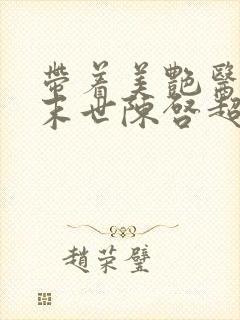 帶着美艷醫
末世陳啓超
趙荣璧